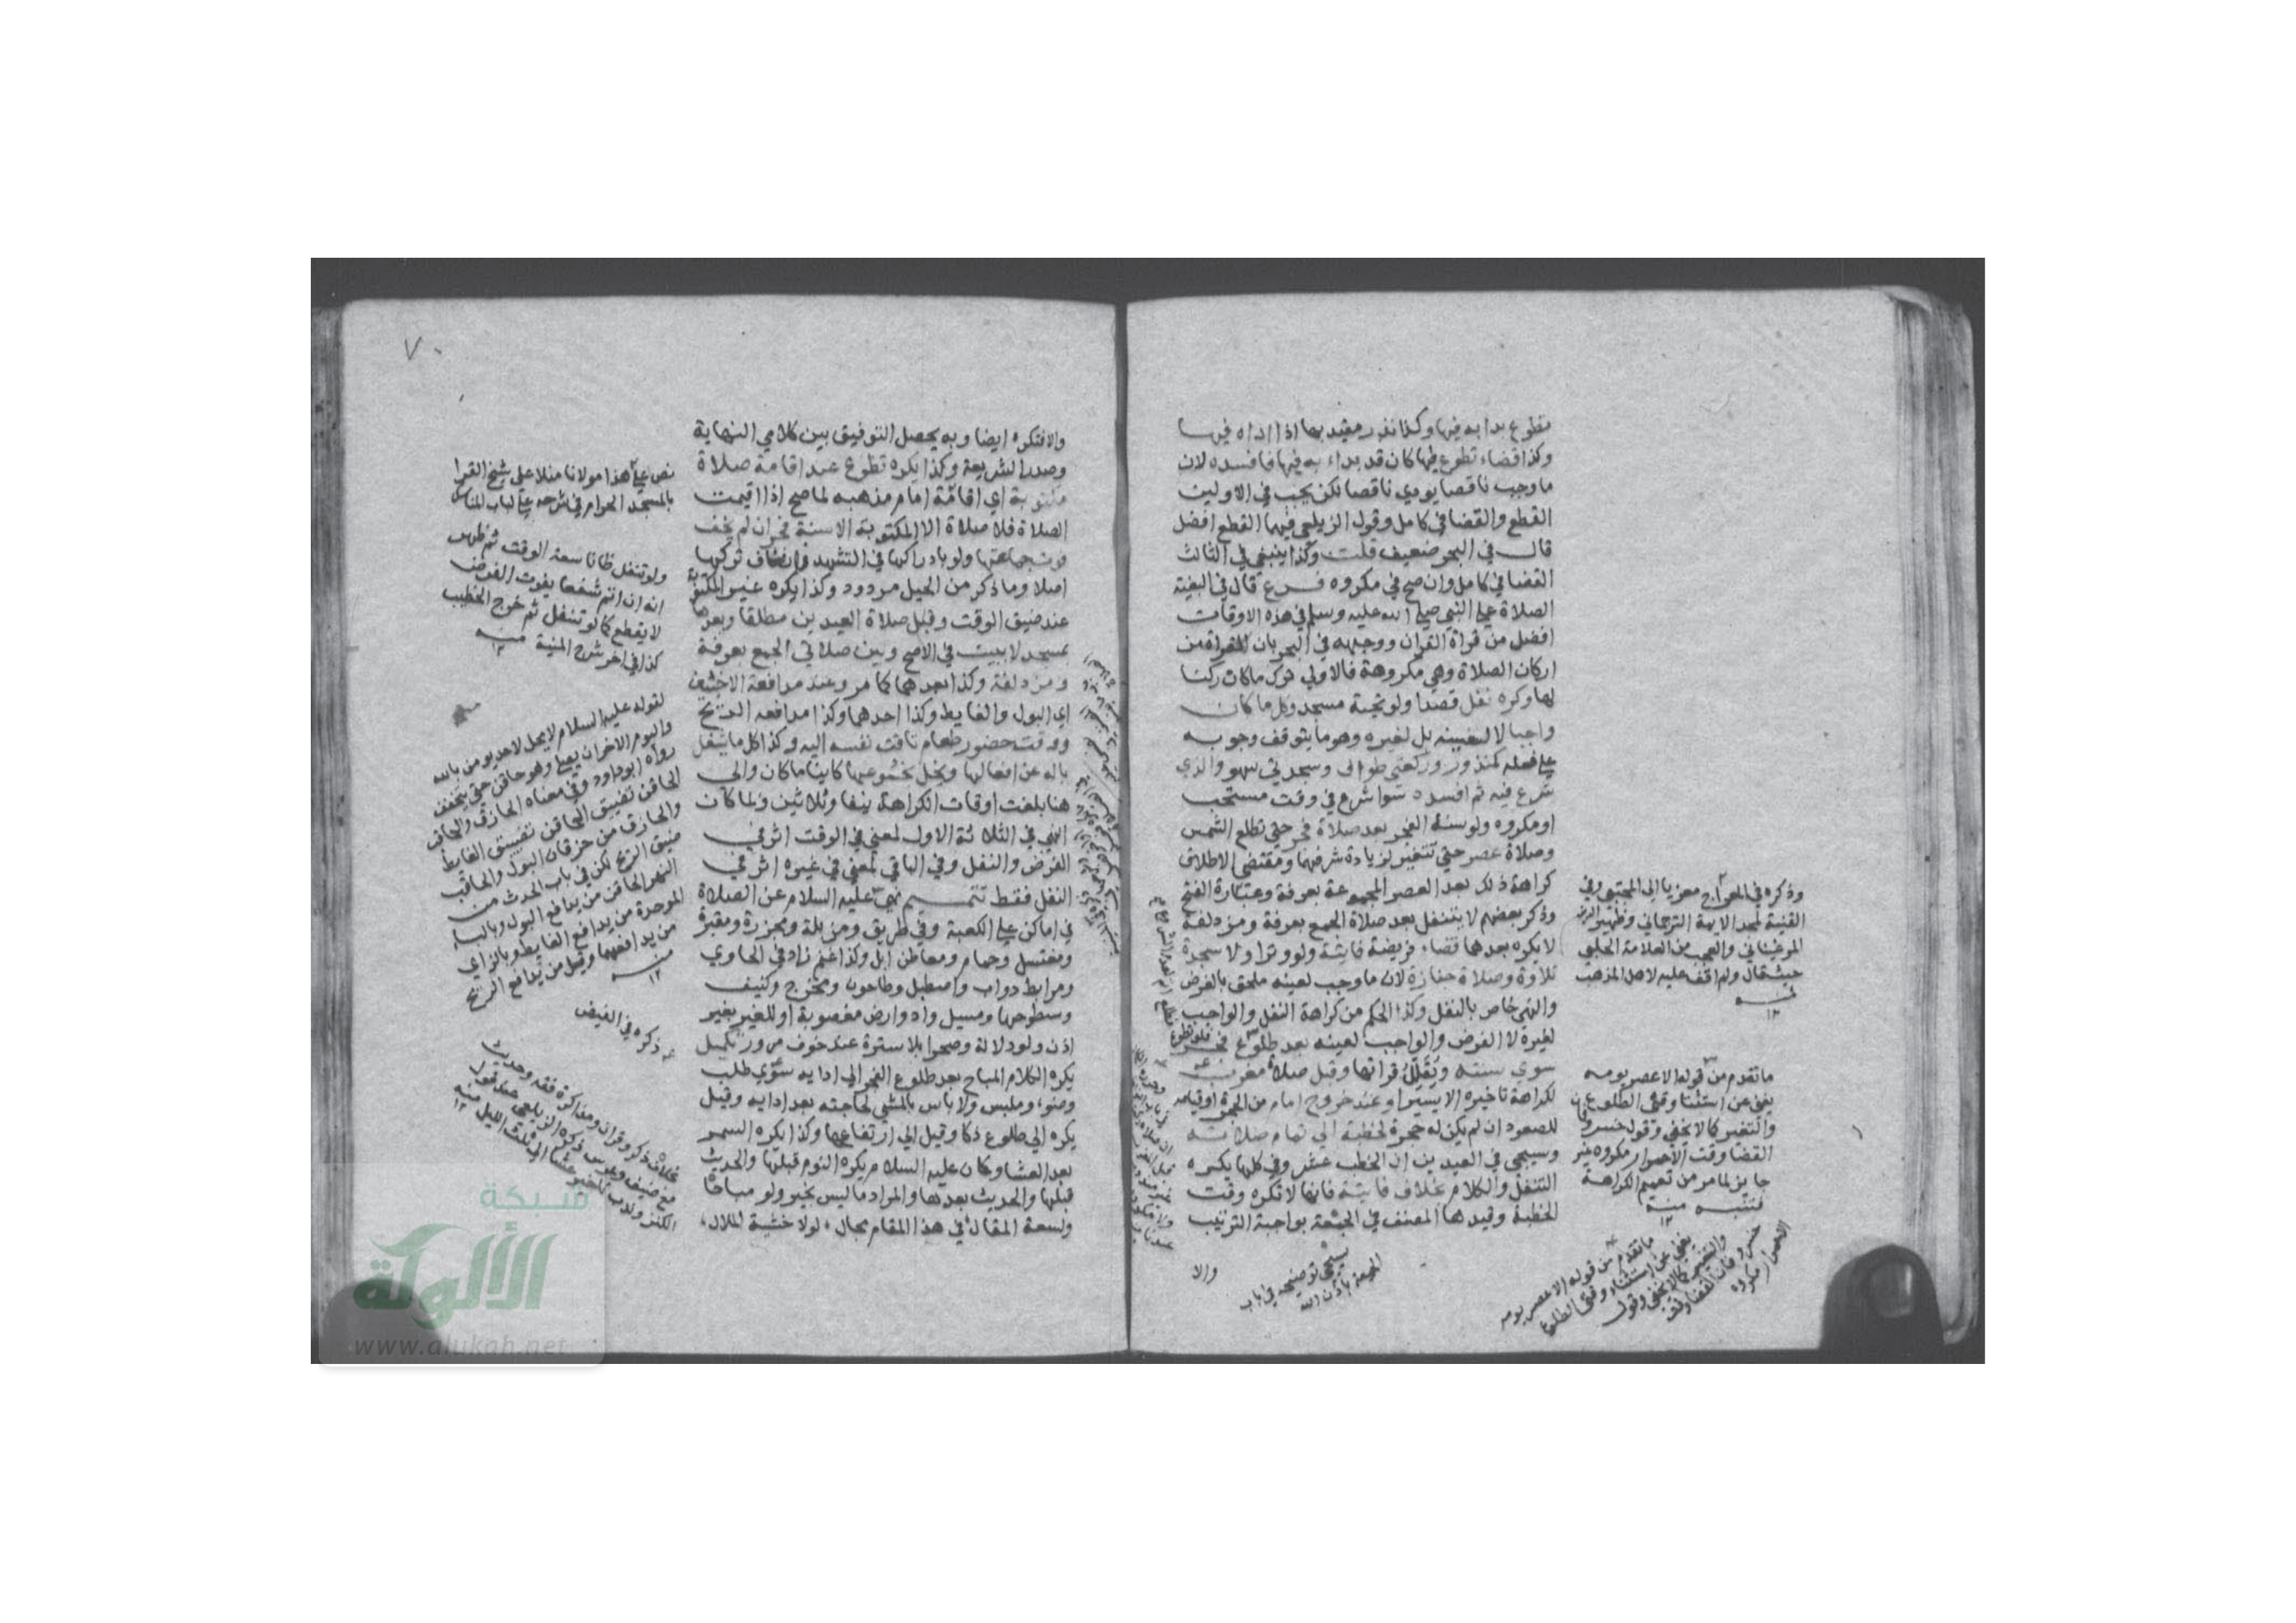 تطوع بدا به فيها وكذا نذر مقيد بها اذا اداه فيها
وكذا قضاء تطوع فيها كان قد بداء به فيها فافسده لان
ما وجب ناقصا يودي ناقصا لكن يجب في الاولين
القطع والقضا في كامل وقول الزيلعي فيهما القطع افضل
قال في البحر ضعيف قلت وكذا ينبغي في الثالث
القضا في كامل وان صح في مكروه فرع قال في البغية
الصلاة على النبي صلى الله عليه وسلم في هذه الاوقات
افضل من قراة القران ووجهه في البحر بان القراة من
اركان الصلاة وهي مكروهة فالاولى ترك ما كان ركنا
لها وكره نفل قصدا ولو تحية مسجد وكل ما كان
واجبا لا لعينه بل لغيره وهو ما يتوقف وجوبه
على فعله كمنذور وركعتي طواف وسجدتي سهو والذي
شرع فيه ثم افسده سوا شرع في وقت مستحب
او مكروه ولو سنة الفجر بعد صلاة فجر حتى تطلع الشمس
وصلاة عصر حتى تتغير لزيادة شرفهما ومقتضى الاطلاق
كراهة ذلك بعد العصر المجموعة بعرفة وعبارة الفتح
وذكر بعضهم لا يتنفل بعد صلاة الجمع بعرفة ومزدلفة
لا يكره بعدهما قضاء فريضة فايتة ولو وترا ولا سجدة
تلاوة وصلاة جنازة لان ما وجب لعينه ملحق بالفرض
والنهي خاص بالنفل وكذا الحكم من كراهة النفل والواجب
لغيره لا الفرض والواجب لعينه بعد طلوع فجر
سوي سنته ويقلل قراتها وقبل صلاة مغرب
لكراهة تاخيره الا يسيرا وعند خروج امام من الحجرة او قيامه
للصعود ان لم يكن له حجرة لخطبة الى تمام صلاته
وسيجي في العيدين ان الخطب عشر وفي كلها يكره
التنفل والكلام بخلاف فايتة فانها لا تكره وقت
الخطبة وقيدها المصنف في الجمعة بواجبة الترتيب
والا
سيجي توضيحه في باب
الجمعة باذن الله
وذكره في المعراج معزيا الى المجتبى وفي
القنية لمجد الايمة الترجماني وظهير الدين
المرغيناني والعجب من العلامة الحلبي
حيث قال ولم اقف عليه لاهل المذهب
منه
١٢
ما تقدم من قوله الا عصر يومه
يغني عن استثنا وقتي الطلوع
والتغير كما لا يخفى وقول خسرو فان
القضا وقت الاحمرار مكروه غير
جايز لما مر من تعميم الكراهة
فتنبه منه
١٢
ما تقدم من قوله الا عصر يومه
يغني عن استثناء وقتي الطلوع
والتغير كما لا يخفى وقول
خسرو فان القضا وقت
الاحمرار مكروه
٧٠
والا فتكره ايضا وبه يحصل التوفيق بين كلامي النهاية
وصدر الشريعة وكذا يكره تطوع عند اقامة صلاة
مكتوبة اي اقامة امام مذهبه لما صح اذا اقيمت
الصلاة فلا صلاة الا المكتوبة الا سنة فجر ان لم يخف
فوت جماعتها ولو بادراكها في التشهد فان خاف تركها
اصلا وما ذكر من الحيل مردود وكذا يكره غير المكتوبة
عند ضيق الوقت وقبل صلاة العيدين مطلقا وبعدها
بمسجد لا ببيت في الاصح وبين صلاتي الجمع بعرفة
ومزدلفة وكذا بعدهما كما مر وعند مدافعة الاخبثين
اي البول والغايط وكذا احدهما وكذا مدافعة الريح
ووقت حضور طعام تاقت نفسه اليه وكذا كل ما يشغل
باله عن افعالها ويخل بخشوعها كاينا ما كان والى
هنا بلغت اوقات الكراهة نيفا وثلاثين ولما كان
النهي في الثلاثة الاول لمعنى في الوقت اثر في
الفرض والنفل وفي الباقي لمعنى في غيره اثر في
النفل فقط تتميم نهى عليه السلام عن الصلاة
في اماكن على الكعبة وفي طريق ومزبلة ومجزرة ومقبرة
ومغتسل وحمام ومعاطن ابل وكذا غنم زاد في الحاوي
ومرابط دواب واصطبل وطاحون ومخرج وكنيف
وسطوحها ومسيل واد وارض مغصوبة او للغير بغير
اذن ولو دلالة وصحرا بلا سترة عند خوف مرور تكميل
يكره الكلام المباح بعد طلوع الفجر الى ادايه سوى طلب
وضوء وملبس ولا باس بالمشي لحاجته بعد ادايه وقيل
يكره الى طلوع ذكا وقيل الى ارتفاعها وكذا يكره السمر
بعد العشا وكان عليه السلام يكره النوم قبلها والحديث
قبلها والحديث بعدها والمراد ما ليس بخير ولو مباحا
ولسعة المقال في هذا المقام مجال، لولا خشية الملال،
نص على هذا مولانا منلا علي شيخ القرا
بالمسجد الحرام في شرحه على لباب المناسك
ولو تنفل ظانا سعة الوقت ثم ظهر
انه ان اتم شفعا يفوت الفرض
لا يقطع كما لو تنفل ثم خرج الخطيب
كذا في اخر شرح المنية منه
١٢
لقوله عليه السلام لا يحل لاحد يومن بالله
واليوم الاخر ان يصلي وهو حاقن حتى يتخفف
رواه ابو داود وفي معناه الحازق والحاقب
والحازق من حزقان البول والحاقب
ضيق الريح لكن في باب الحدث من
النهر الحاقن من يدافع البول وبالباء
الموحدة من يدافع الغايط وبالزاي
من يدافعهما وقيل من يدافع الريح
منه
١٢
ذكره في الفيض
بخلاف ذكر وقران ومذاكرة فقه وحديث
مع ضيف وعرس ذكره الزيلعي عند قول
الكنز وندب تاخير عشا الى ثلث الليل منه
١٢
شبكة
الألوكة
www.alukah.net